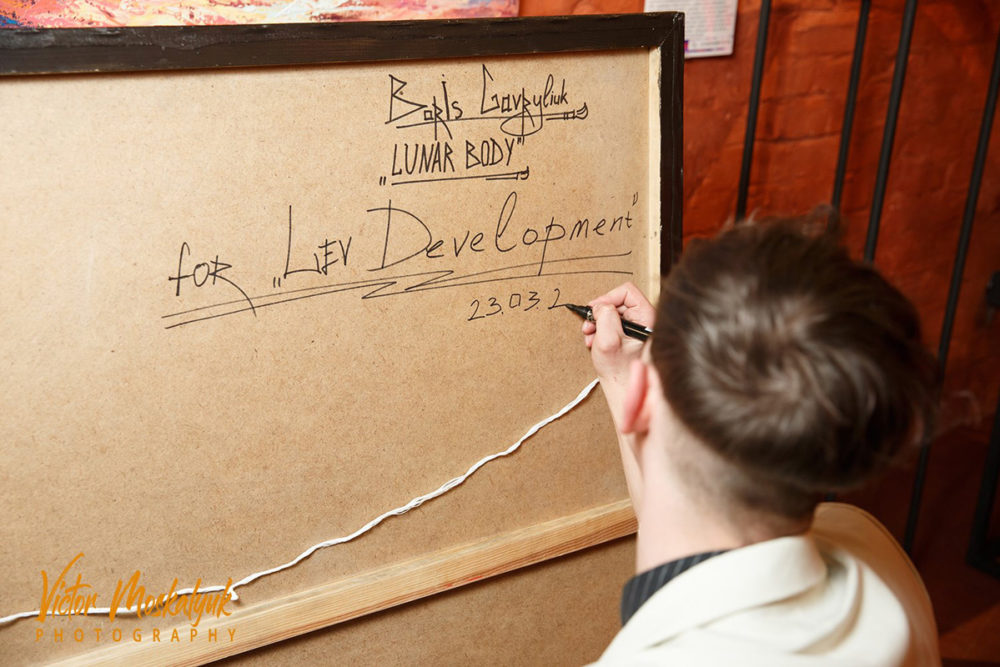 Boris Gavryliuk
„LUNAR BODY"
for „LEV Development"
23.03.2
Victor Moskalyuk
PHOTOGRAPHY